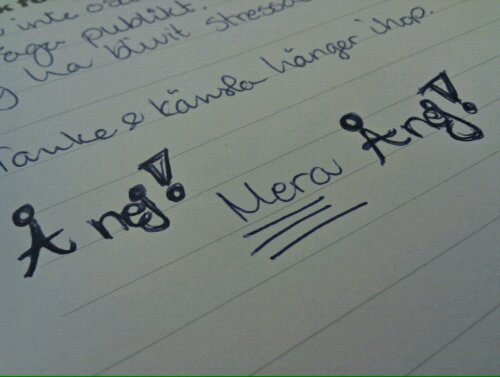 inte
säga publikt.
ha blivit stressad
Tanke & känsla hänger ihop.
Å nej! Mera Ång!